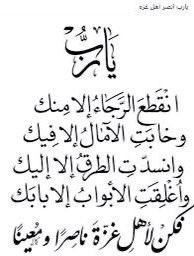 يارب انصر اهل غزه
يَا رَبُّ
انْقَطَعَ الرَّجَاءُ إلا مِنك
وخابَتِ الآمَالُ إلا فِيك
وانسدّتِ الطرقُ إلا إليك
وأُغْلِقَتِ الأبوابُ إلا بابَك
فكنْ لأهلِ غزَّةَ ناصِرًا ومُعِينًا